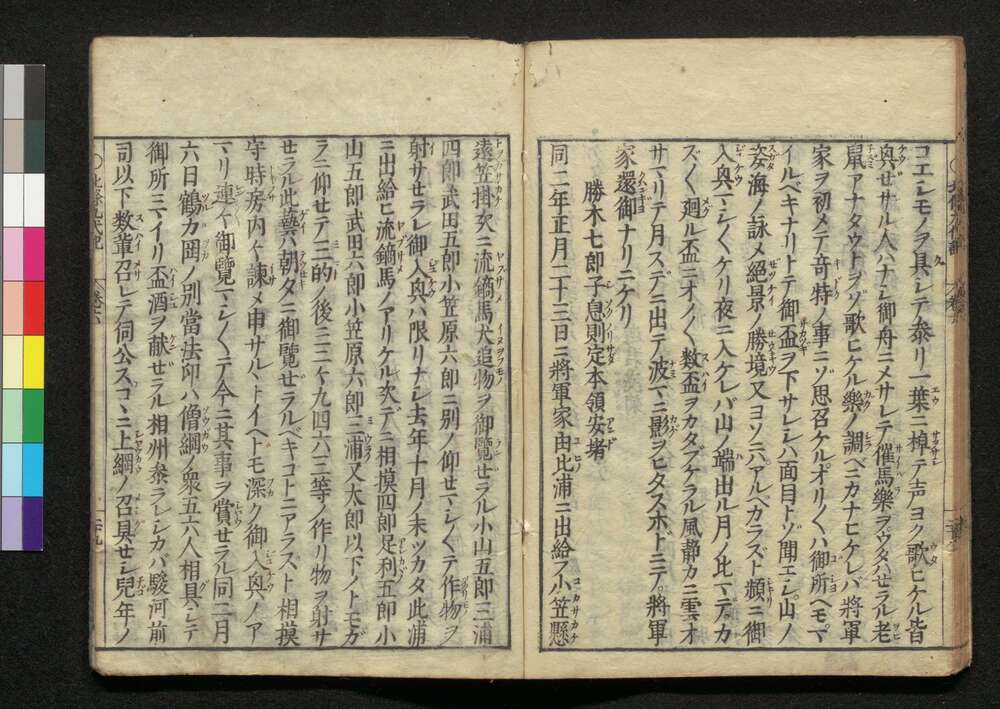 コエシモノヲ具シテ参リ一葉ニ棹テ声ヨク歌ヒケル皆
興ゼサル人ハナシ御舟ニメサレテ催馬樂ヲウタハせラル老
鼠アナタウトヲゾ歌ヒケル樂ノ調ベニカナヒケレバ將軍
家ヲ初メテ奇特ノ事ニゾ思召ケルオリ〱ハ御所ヘモマ
イルベキナリトテ御盃ヲ下サレシハ面目トゾ聞エシ山ノ
姿海ノ詠メ絶景ノ勝境又ヨソニアルベカラズト頻ニ御
入興マシ〱ケリ夜ニ入ケレバ山ノ端出ル月ノ比マデカ
ズ〱廻ル盃ニオノ〱数盃ヲカタブケラル風静カニ雲オ
サマリテ月スデニ出テ波マニ影ヲヒタスホドニテ將軍
家還御ナリニケリ
勝木七郎子息則定本領安堵
同二年正月二十三日ニ將軍家由比浦ニ出給フ小笠懸
遠笠掛次ニ流鏑馬犬追物ヲ御覽せラル小山五郎三浦
四郎武田五郎小笠原六郎ニ別ノ仰せマシ〱テ作物ヲ
射サせラレ御入興ハ限リナシ去年十月ノ末ツカタ此浦
ニ出給ヒ流鏑馬ノアリケル次デニ相摸四郎足利五郎小
山五郎武田六郎小笠原六郎三浦又太郎以下ノトモガ
ラニ仰せテ三的ノ後三々九四六三等ノ作リ物ヲ射サ
せラル此藝ハ朝夕ニ御覽ぜラルベキコトニアラズト相摸
守時房内々諫メ申サルヽトイヘトモ深ク御入興ノア
マリ連々御覽マシ〱テ今ニ其事ヲ賞せラル同二月
六日鶴カ岡ノ別當法印ハ僧綱ノ衆五六人相具シテ
御所ニマイリ盃酒ヲ献ぜラル相州参ラレシカバ駿河前
司以下数輩召レテ伺公スコヽニ上綱ノ召具せシ兒年ノ